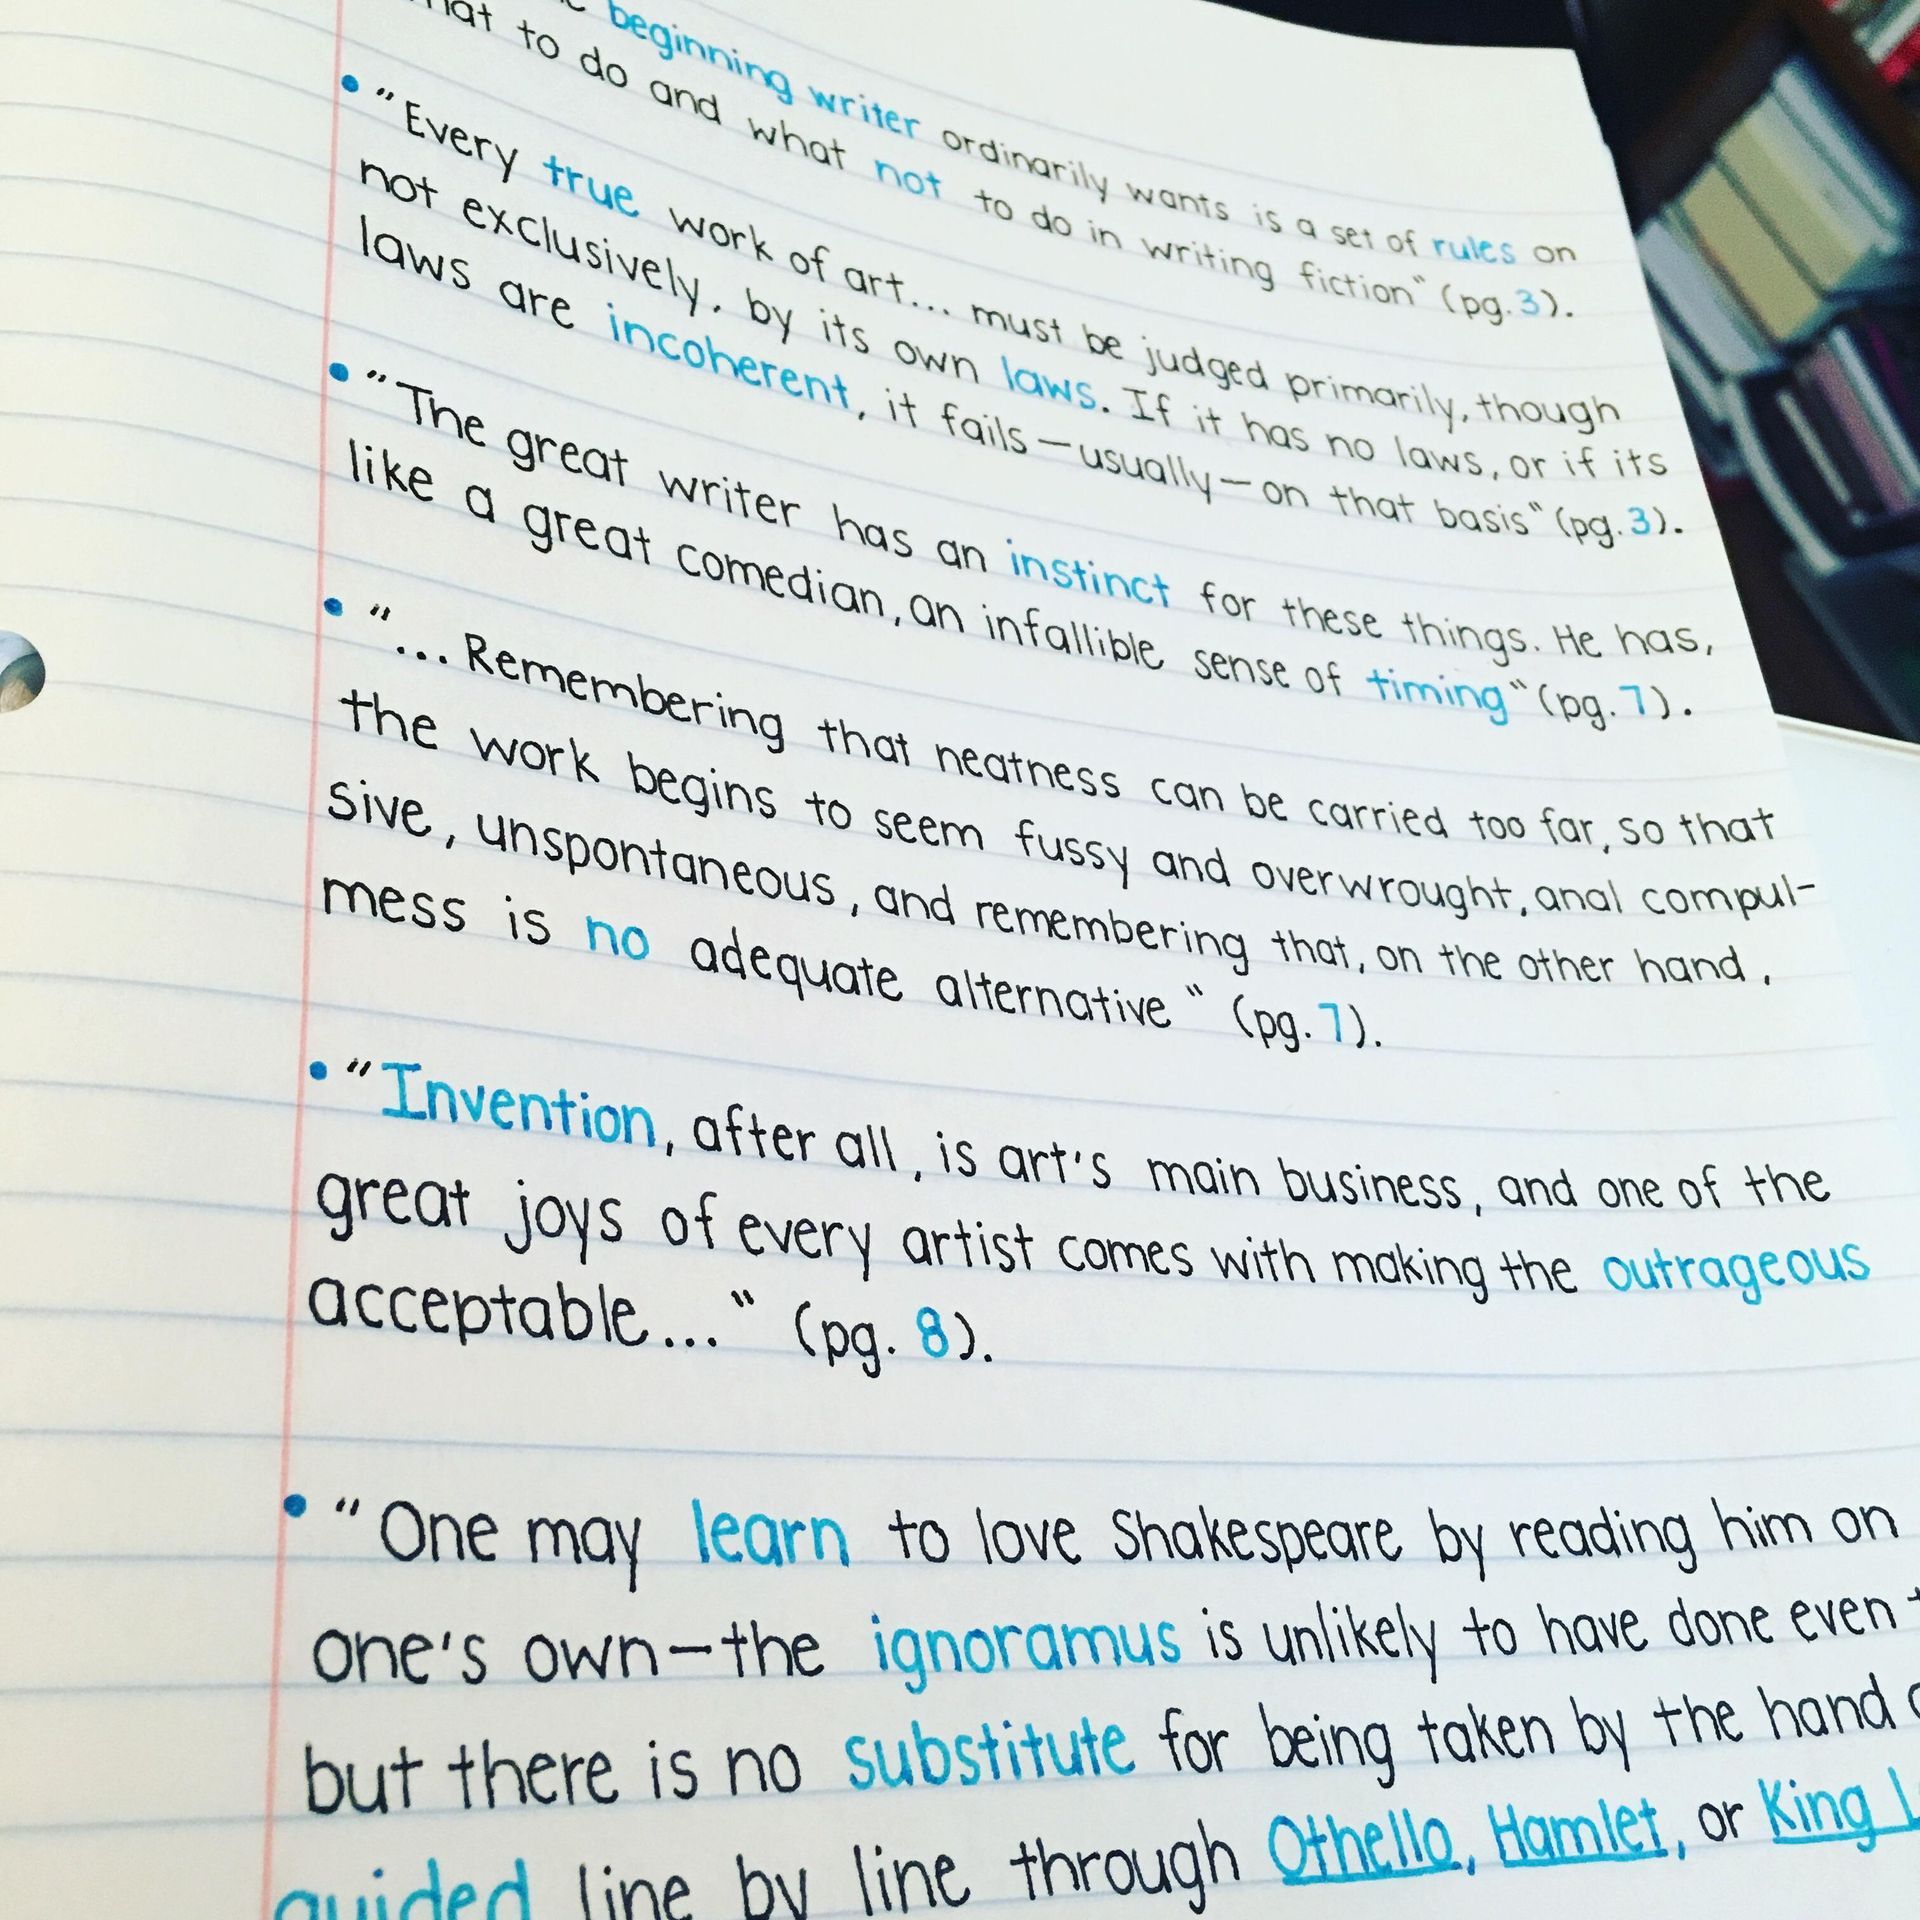 beginning writer ordinarily wants is a set of rules on
to do and what not to do in writing fiction" (pg. 3).
• "Every true work of art... must be judged primarily, though
not exclusively, by its own laws. If it has no laws, or if its
laws are incoherent, it fails—usually—on that basis" (pg. 3).
• "The great writer has an instinct for these things. He has,
like a great comedian, an infallible sense of timing" (pg. 7).
• "... Remembering that neatness can be carried too far, so that
the work begins to seem fussy and overwrought, anal compul-
sive, unspontaneous, and remembering that, on the other hand,
mess is no adequate alternative" (pg. 7).
• "Invention, after all, is art's main business, and one of the
great joys of every artist comes with making the outrageous
acceptable..." (pg. 8).
• "One may learn to love Shakespeare by reading him on
one's own—the ignoramus is unlikely to have done even
but there is no substitute for being taken by the hand
guided line by line through Othello, Hamlet, or King